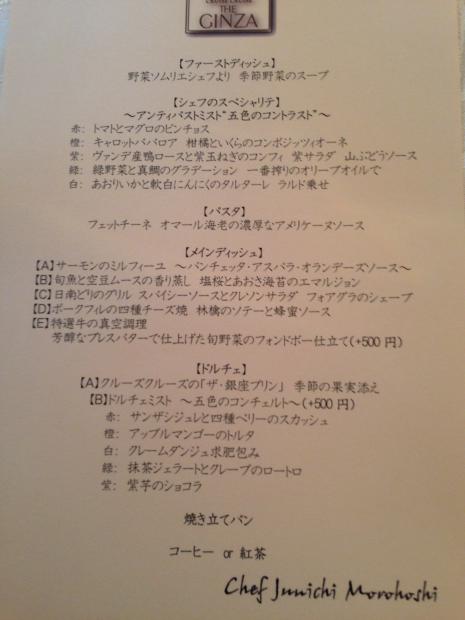 CRUISE CRUISE
THE
GINZA
【ファーストディッシュ】
野菜ソムリエシェフより 季節野菜のスープ
【シェフのスペシャリテ】
～アンティパストミスト“五色のコントラスト”～
赤: トマトとマグロのピンチョス
橙: キャロットババロア 柑橘といくらのコンポジッツィオーネ
紫: ヴァンデ産鴨ロースと紫玉ねぎのコンフィ 紫サラダ 山ぶどうソース
緑: 緑野菜と真鯛のグラデーション 一番搾りのオリーブオイルで
白: あおりいかと軟白にんにくのタルターレ ラルド乗せ
【パスタ】
フェットチーネ オマール海老の濃厚なアメリケーヌソース
【メインディッシュ】
【A】サーモンのミルフィーユ ～パンチェッタ・アスパラ・オランデーズソース～
【B】旬魚と空豆ムースの香り蒸し 塩桜とあおさ海苔のエマルジョン
【C】日南どりのグリル スパイシーソースとクレソンサラダ フォアグラのシェーブ
【D】ポークフィレの四種チーズ焼 林檎のソテーと蜂蜜ソース
【E】特選牛の真空調理
芳醇なプレスバターで仕上げた旬野菜のフォンドボー仕立て(+500円)
【ドルチェ】
【A】クルーズクルーズの「ザ・銀座プリン」 季節の果実添え
【B】ドルチェミスト ～五色のコンチェルト～(+500円)
赤: サンザシジュレと四種ベリーのスカッシュ
橙: アップルマンゴーのトルタ
白: クレームダンジュ求肥包み
緑: 抹茶ジェラートとグレープのロートロ
紫: 紫芋のショコラ
焼き立てパン
コーヒー or 紅茶
Chef Junichi Morohoshi